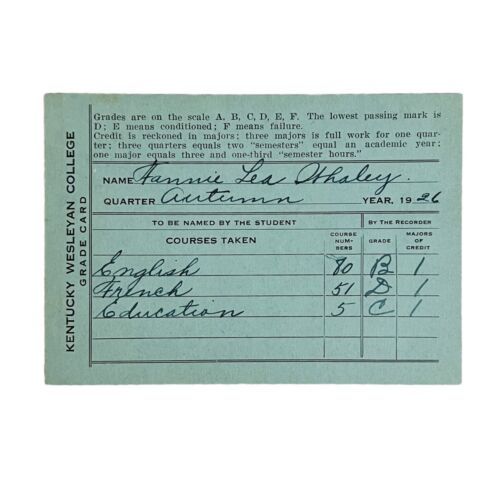 KENTUCKY WESLEYAN COLLEGE
GRADE CARD
Grades are on the scale A, B, C, D, E, F. The lowest passing mark is
D; E means conditioned; F means failure.
Credit is reckoned in majors; three majors is full work for one quar-
ter; three quarters equals two "semesters" equal an academic year;
one major equals three and one-third "semester hours."
NAME Fannie Lea Whaley.
QUARTER Autumn YEAR, 1926
TO BE NAMED BY THE STUDENT BY THE RECORDER
COURSES TAKEN COURSE NUM-BERS GRADE MAJORS OF CREDIT
English 80 B 1
French 51 D 1
Education 5 C 1